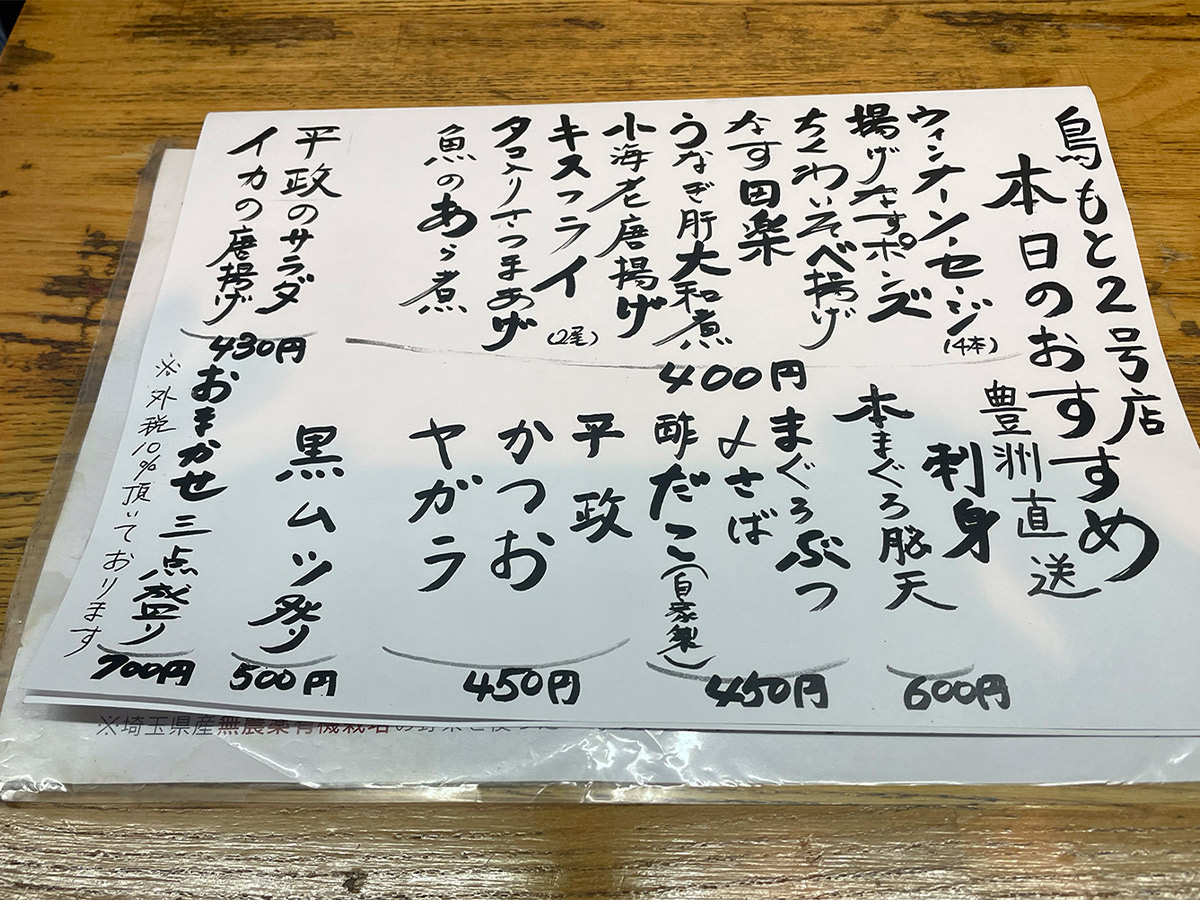 鳥もと2号店
本日のおすすめ
ウィンナーソーセージ(4本)
揚げなすポンズ
ちくわいそべ揚げ
なす田楽
うなぎ肝大和煮
小海老唐揚げ
キスフライ(2尾)
タコ入りさつまあげ
魚のあら煮
400円
平政のサラダ
イカの唐揚げ
430円
豊洲直送
刺身
本まぐろ脳天
600円
まぐろぶつ
〆さば
酢だこ(自家製)
450円
平政
かつお
ヤガラ
450円
黒ムツ炙り
500円
おまかせ三点盛り
700円
※外税10%頂いております
※埼玉県産無農薬有機栽培の野菜を使った